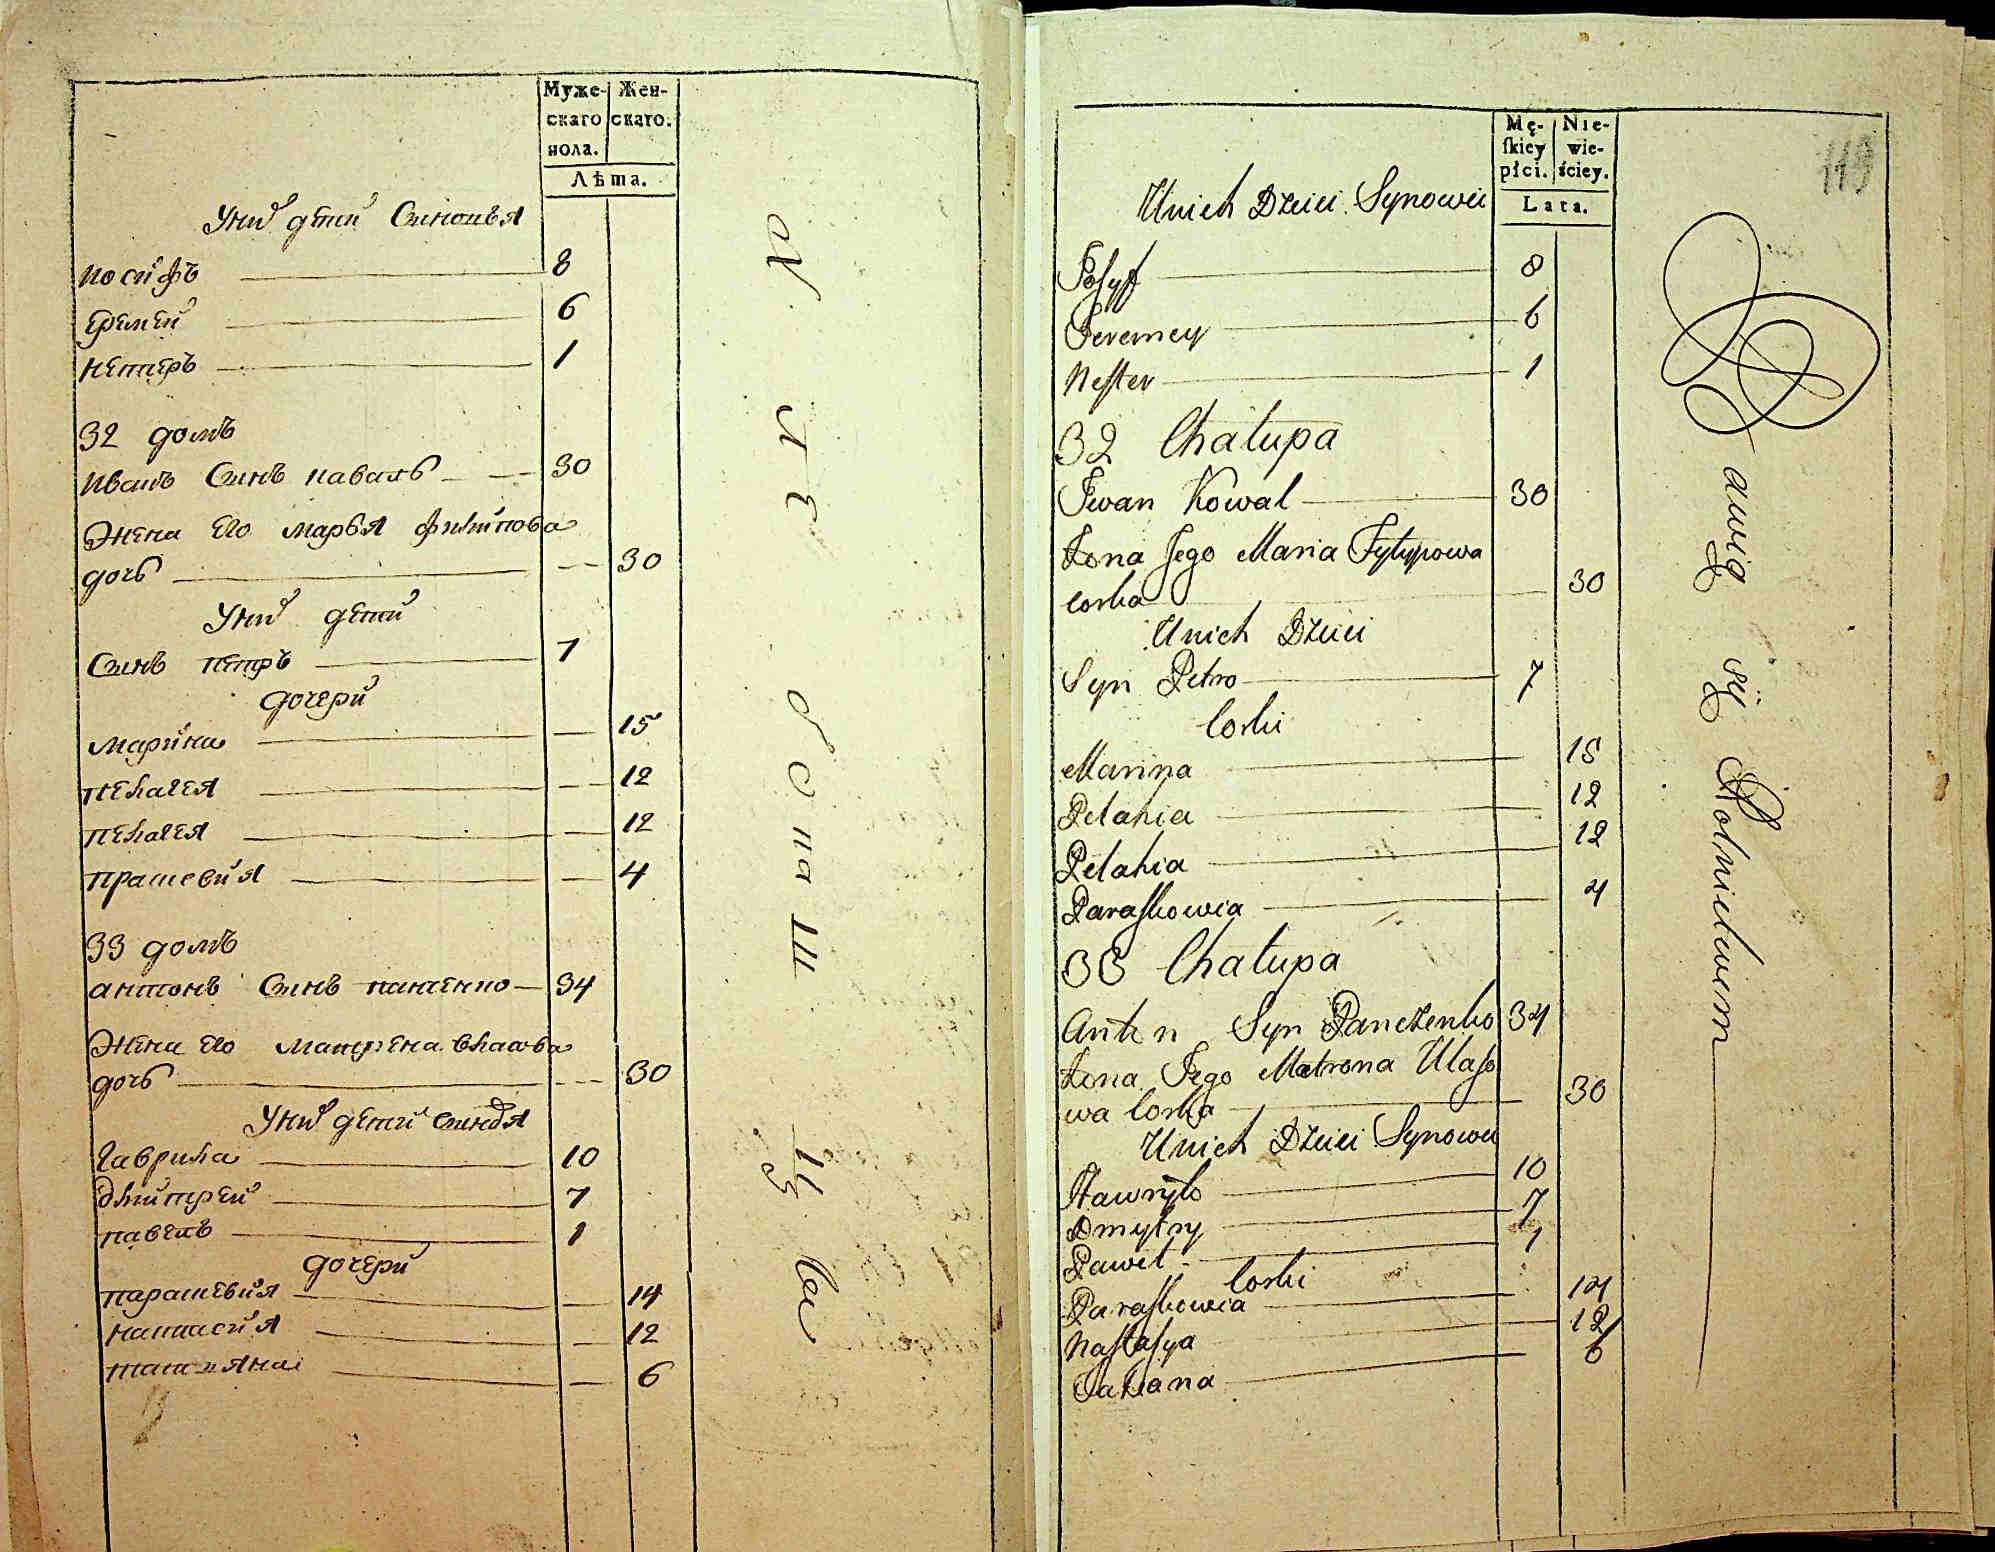 Муже-
скаго
пола.
Жен-
скаго.
Лѣта.
Унихъ детей Синовья
иосифъ 8
еремей 6
нестеръ 1
32 домъ
иванъ Синъ коваль 30
Жена его марья филипова
дочь 30
Унихъ детей
Синъ петръ 7
дочери
марина 15
пелагея 12
пелагея 12
прасковия 4
33 домъ
антонъ Синъ панченко 34
Жена его матрена власова
дочь 30
Унихъ детей Синовья
гаврила 10
дмитрей 7
павелъ 1
дочери
параскевия 14
настасия 12
татьяна 6
Mę-
ſkiey
płci.
Nie-
wie-
ściey.
Lata.
119
Unich Dzieci Synowie
Josyf 8
Jeremey 6
Nester 1
32 Chałupa
Iwan Kowal 30
Żona Jego Maria Fylypowa
Corka 30
Unich Dzieci
Syn Petro 7
Corki
Marina 15
Pelahia 12
Pelahia 12
Paraskowia 4
33 Chałupa
Anton Syn Panczenko 34
Żona Jego Matrona Ulaso
wa Corka 30
Unich Dzieci Synowie
Hawryło 10
Dmytry 7
Paweł 1
Corki
Paraskowia 14
Nastasya 12
Tatiana 6
Bawią się Rolnictwem